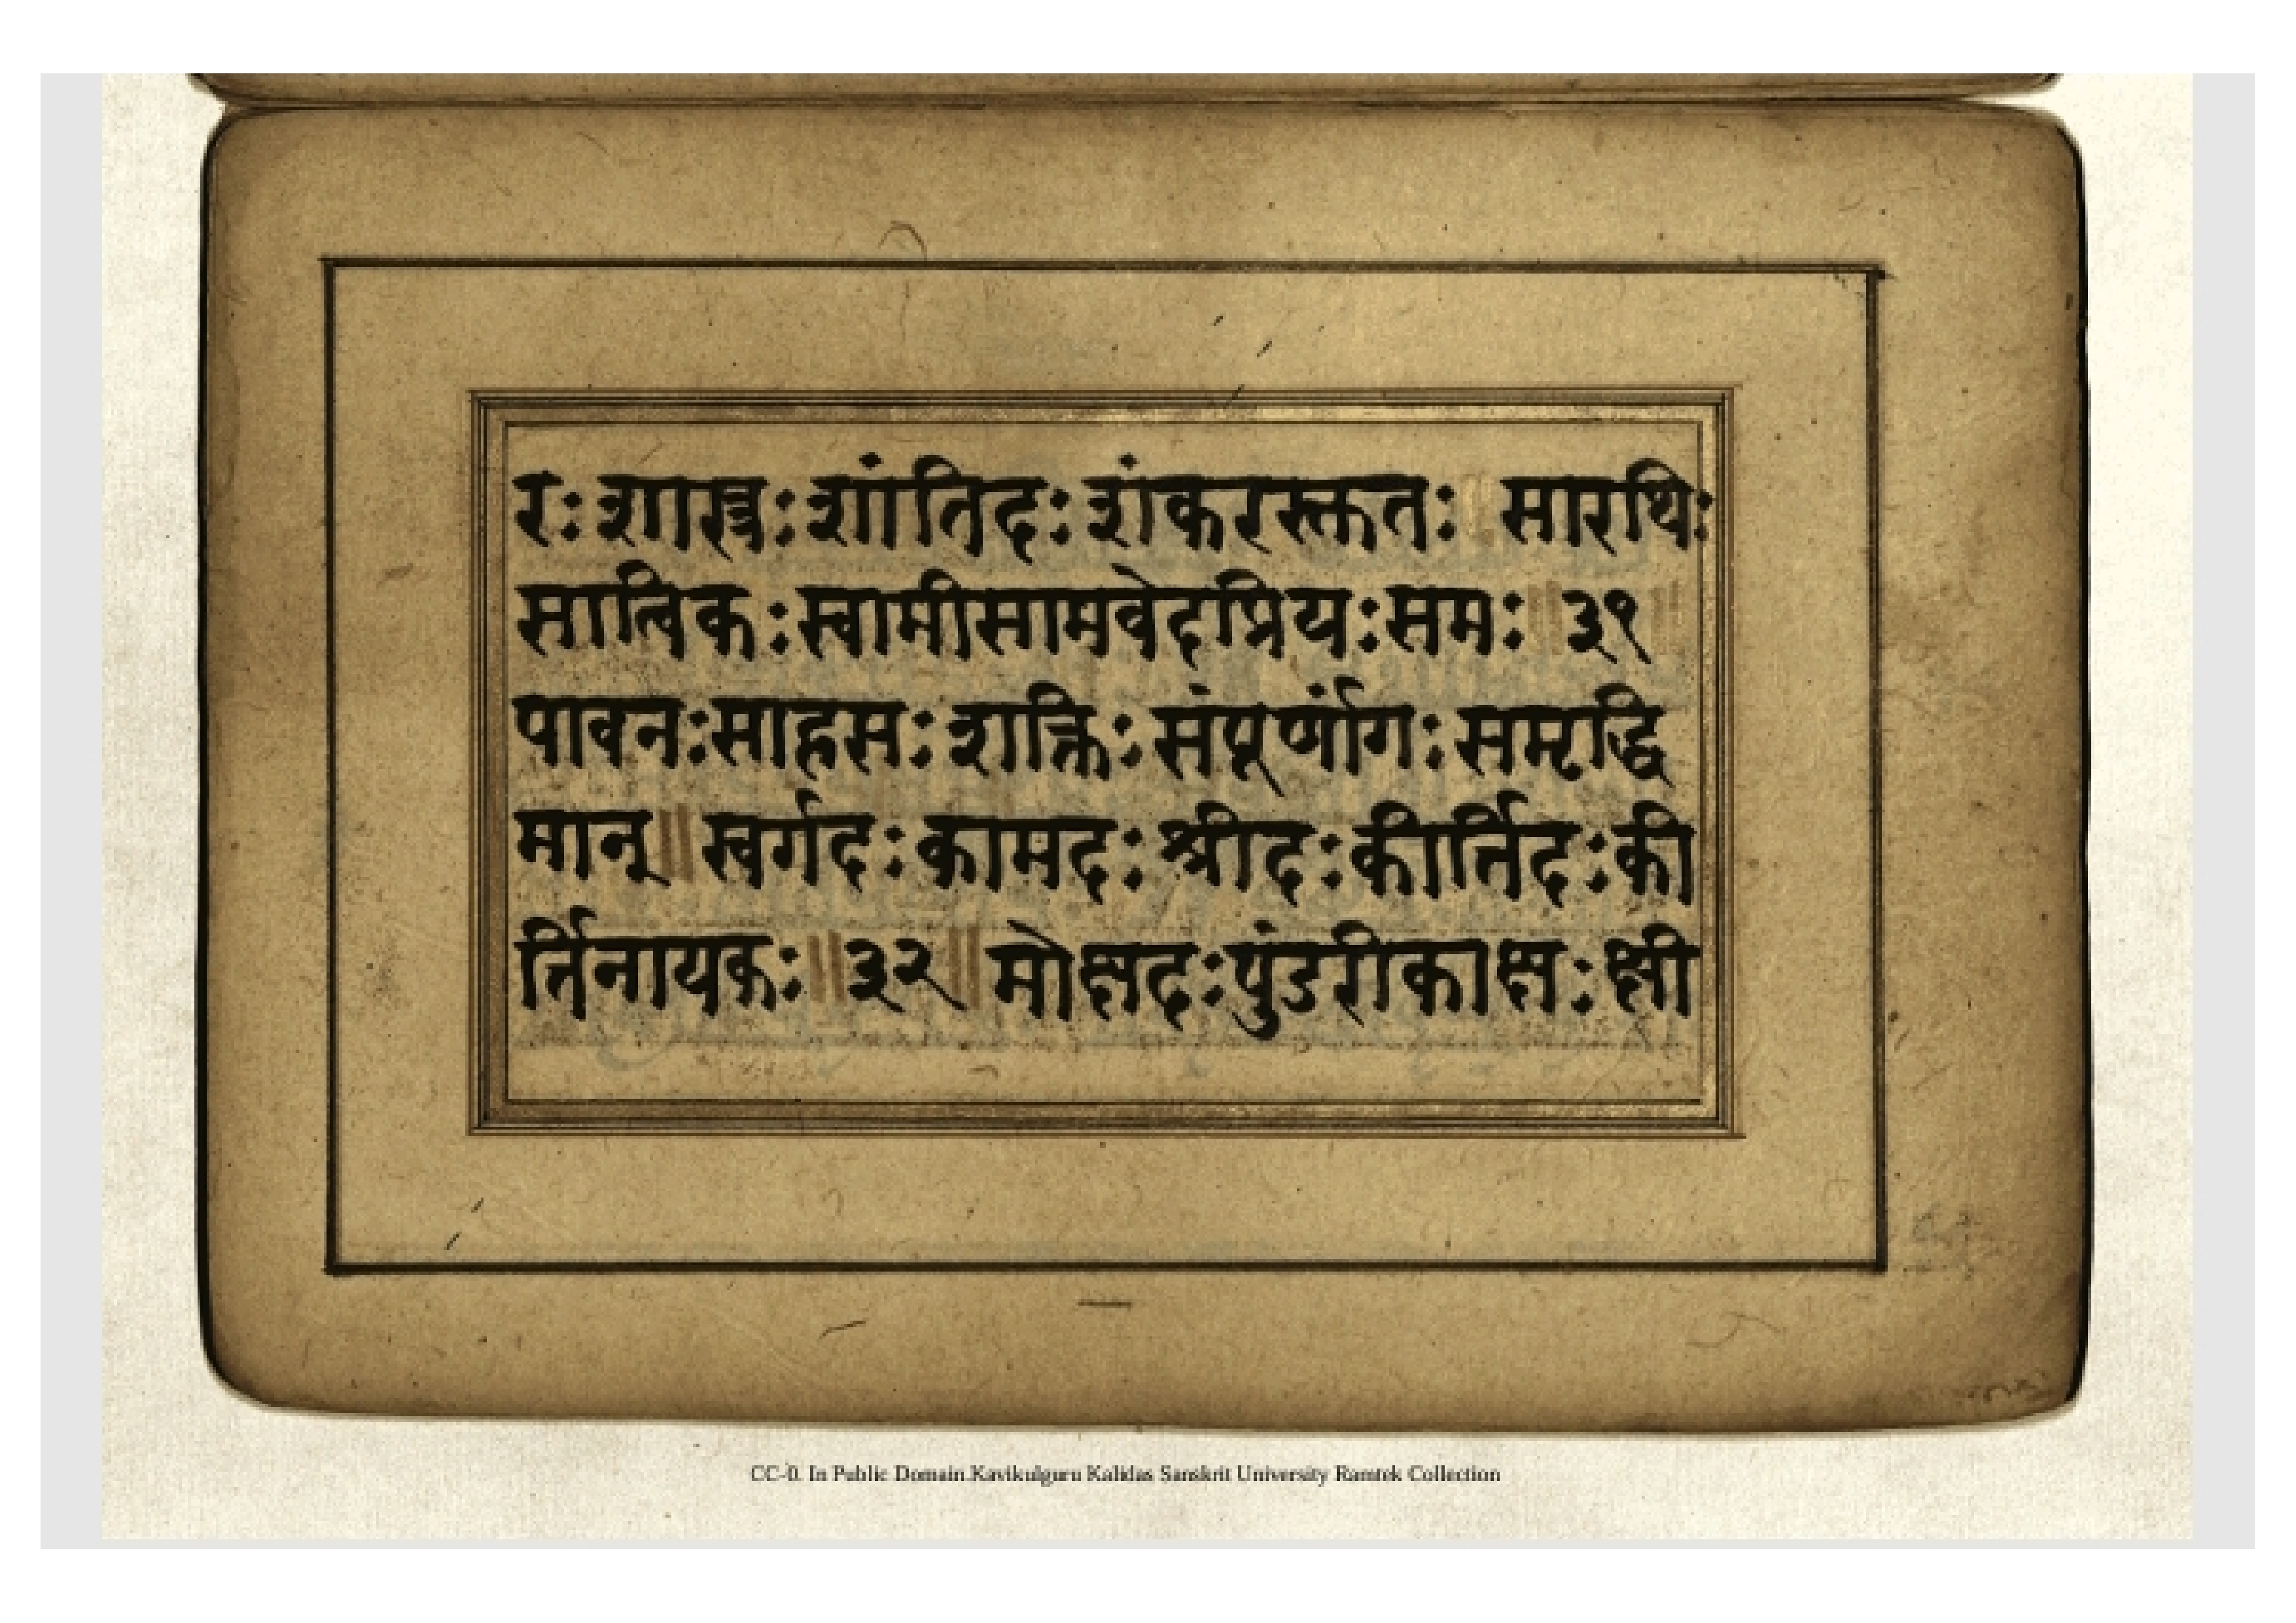 रः शास्त्रः शांतिदः शंकरस्कृतः ॥ सारथिः
सात्विकः स्वामीसामवेदप्रियः समः ॥ ३१ ॥
पावनः साहसः शक्तिः संपूर्णांगः समृद्धि
मान् ॥ स्वर्गदः कामदः श्रीदः कीर्तिदः की
र्तिनायकः ॥ ३२ ॥ मोक्षदः पुंडरीकाक्षः क्षी
CC-0. In Public Domain.Kavikulguru Kalidas Sanskrit University Ramtek Collection